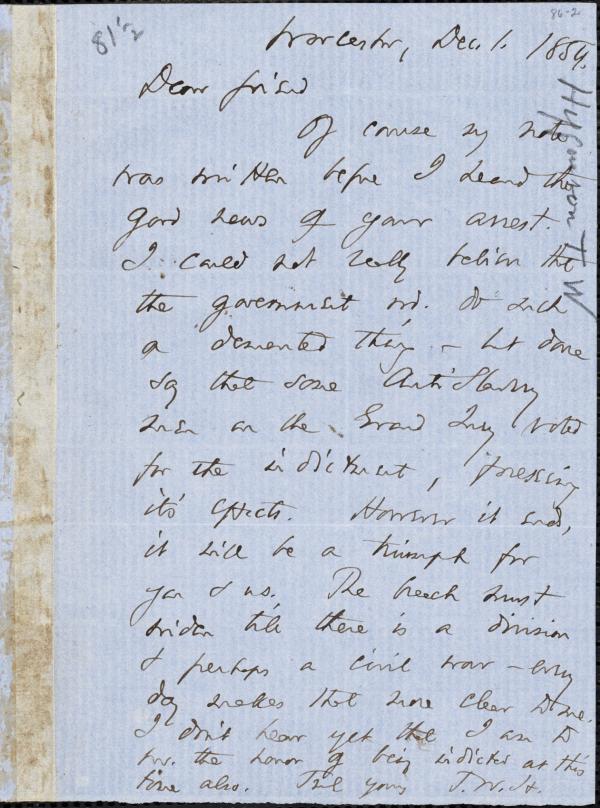 86-2
81½
Worcester, Dec. 1. 1854.
Dear friend
Of course my note
was written before I heard the
good news of your arrest.
I could not really believe that
the government wd. do such
a demented thing – but dare
say that some Anti Slavery
men on the Grand Jury voted
for the indictment,
its effects. However it ends,
it will be a triumph for
you & us. The breach must
widen till there is a division
& perhaps a civil war – every
day makes that more clear to me.
I don't hear yet that I am to
the honor of being indicted at this
time also. yours T. W. H.
W H